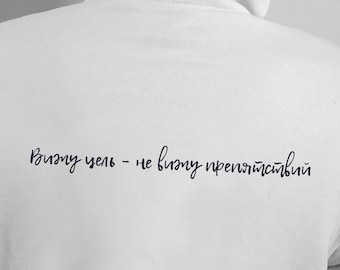 Вижу цель - не вижу препятствий